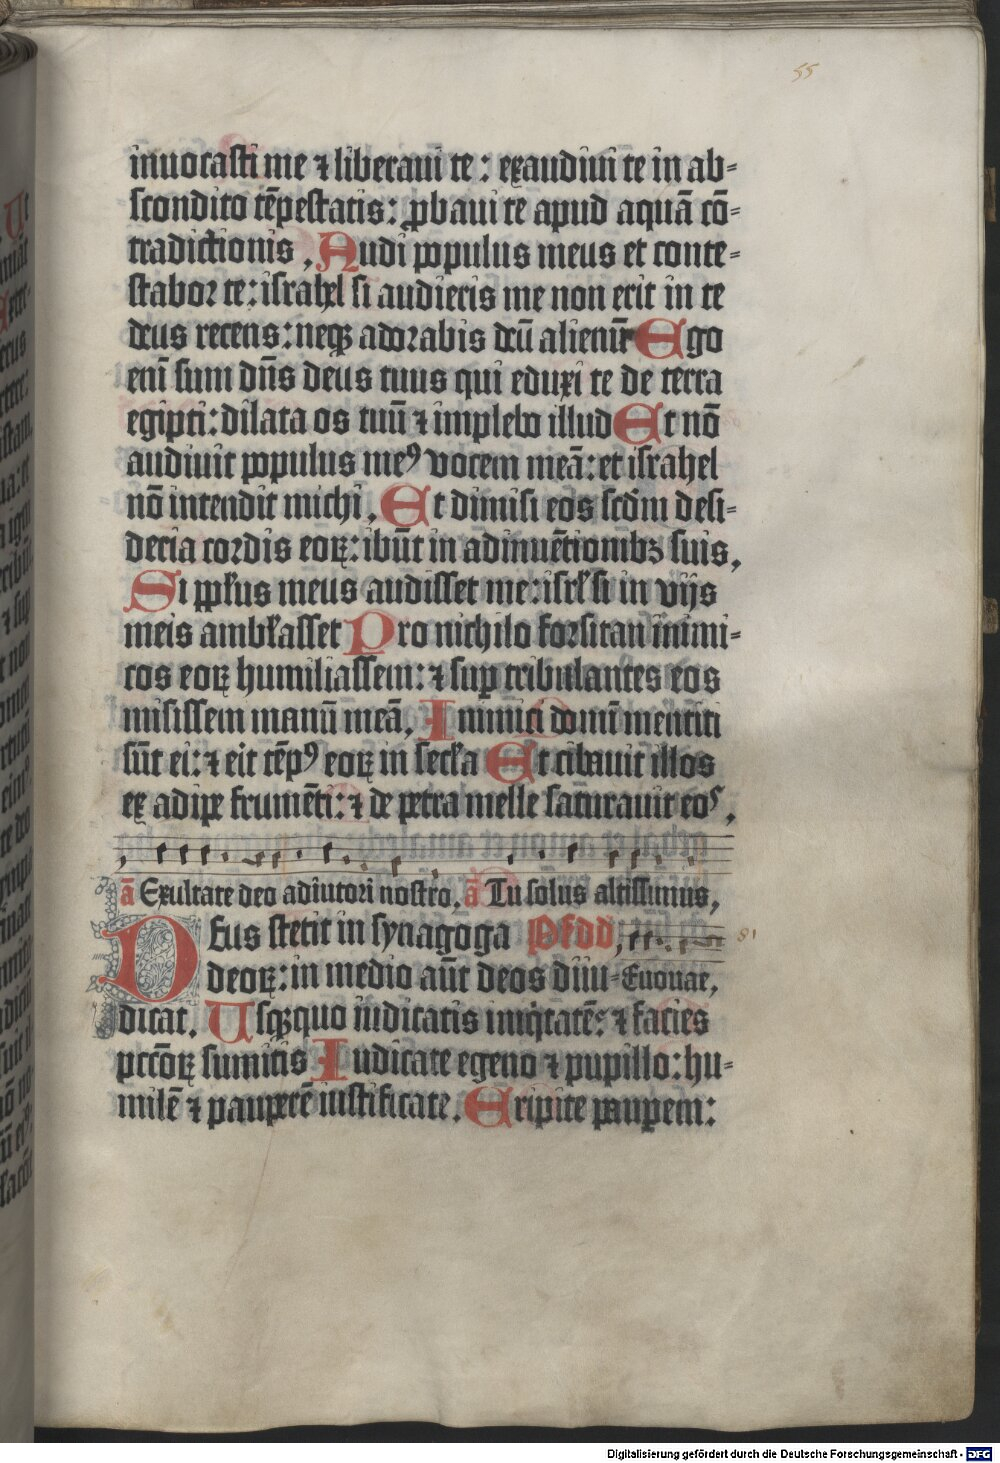 55
inuocasti me ⁊ liberaui te: exaudiui te in ab-
scondito tēpestatis: ꝓbaui te apud aquā cō-
tradictionis. Audi populus meus et conte-
stabor te: israhel si audieris me non erit in te
deus recens: neqꝫ adorabis deū alienū Ego
eni sum dn̄s deus tuus qui eduxi te de terra
egipti: dilata os tuū ⁊ implebo illud Et nō
audiuit populus meꝰ vocem meā: et israhel
nō intendit michi. Et dimisi eos scd̄m desi-
deria cordis eoꝝ: ibūt in adinuētionibꝫ suis.
Si ppl̄us meus audisset me: isrl̄ si in vijs
meis ambl̄asset Pro nichilo forsitan inimi-
cos eoꝝ humiliassem: ⁊ suꝑ tribulantes eos
misissem manū meā. Inimici domi mentiti
sūt ei: ⁊ eit tēpꝰ eoꝝ in secl̄a Et cibauit illos
ex adipe frumēti: ⁊ de petra melle saturauit eos.
ā Exultate deo adiutori nostro. ā Tu solus altissimus.
Deus stetit in synagoga
deoꝝ: in medio aūt deos diiu- Euouae.
81
dicat. Usqꝫquo iudicatis iniq̇tatē: ⁊ facies
pcc̄oꝝ sumitis Iudicate egeno ⁊ pupillo: hu-
milē ⁊ pauperē iustificate. Eripite pauꝑem:
Digitalisierung gefördert durch die Deutsche Forschungsgemeinschaft - DFG